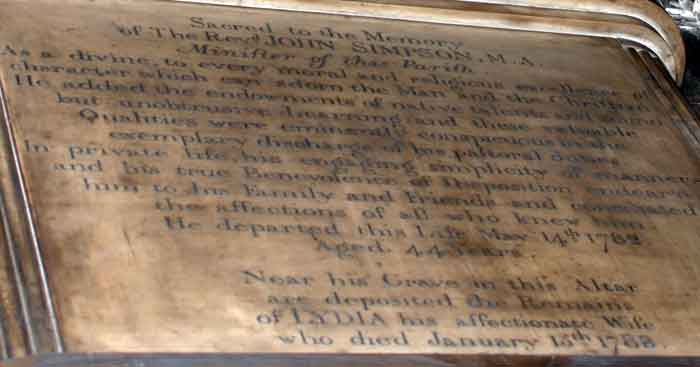 Sacred to the Memory
of The Revd. JOHN SIMPSON, M.A.
Minister of this Parish.
As a divine, to every moral and religious excellence of
character which can adorn the Man and the Christian
He added the endowments of native talents and sound
but unobtrusive learning and these valuable
Qualities were eminently conspicuous in the
exemplary discharge of his pastoral duties
In private life his engaging simplicity of manners
and his true Benevolence of Disposition endeared
him to his Family and Friends and conciliated
the affections of all who knew him
He departed this Life May 14th
Aged 44 years.
Near his Grave in this Altar
are deposited the Remains
of LYDIA his affectionate Wife
who died January 15th 1788